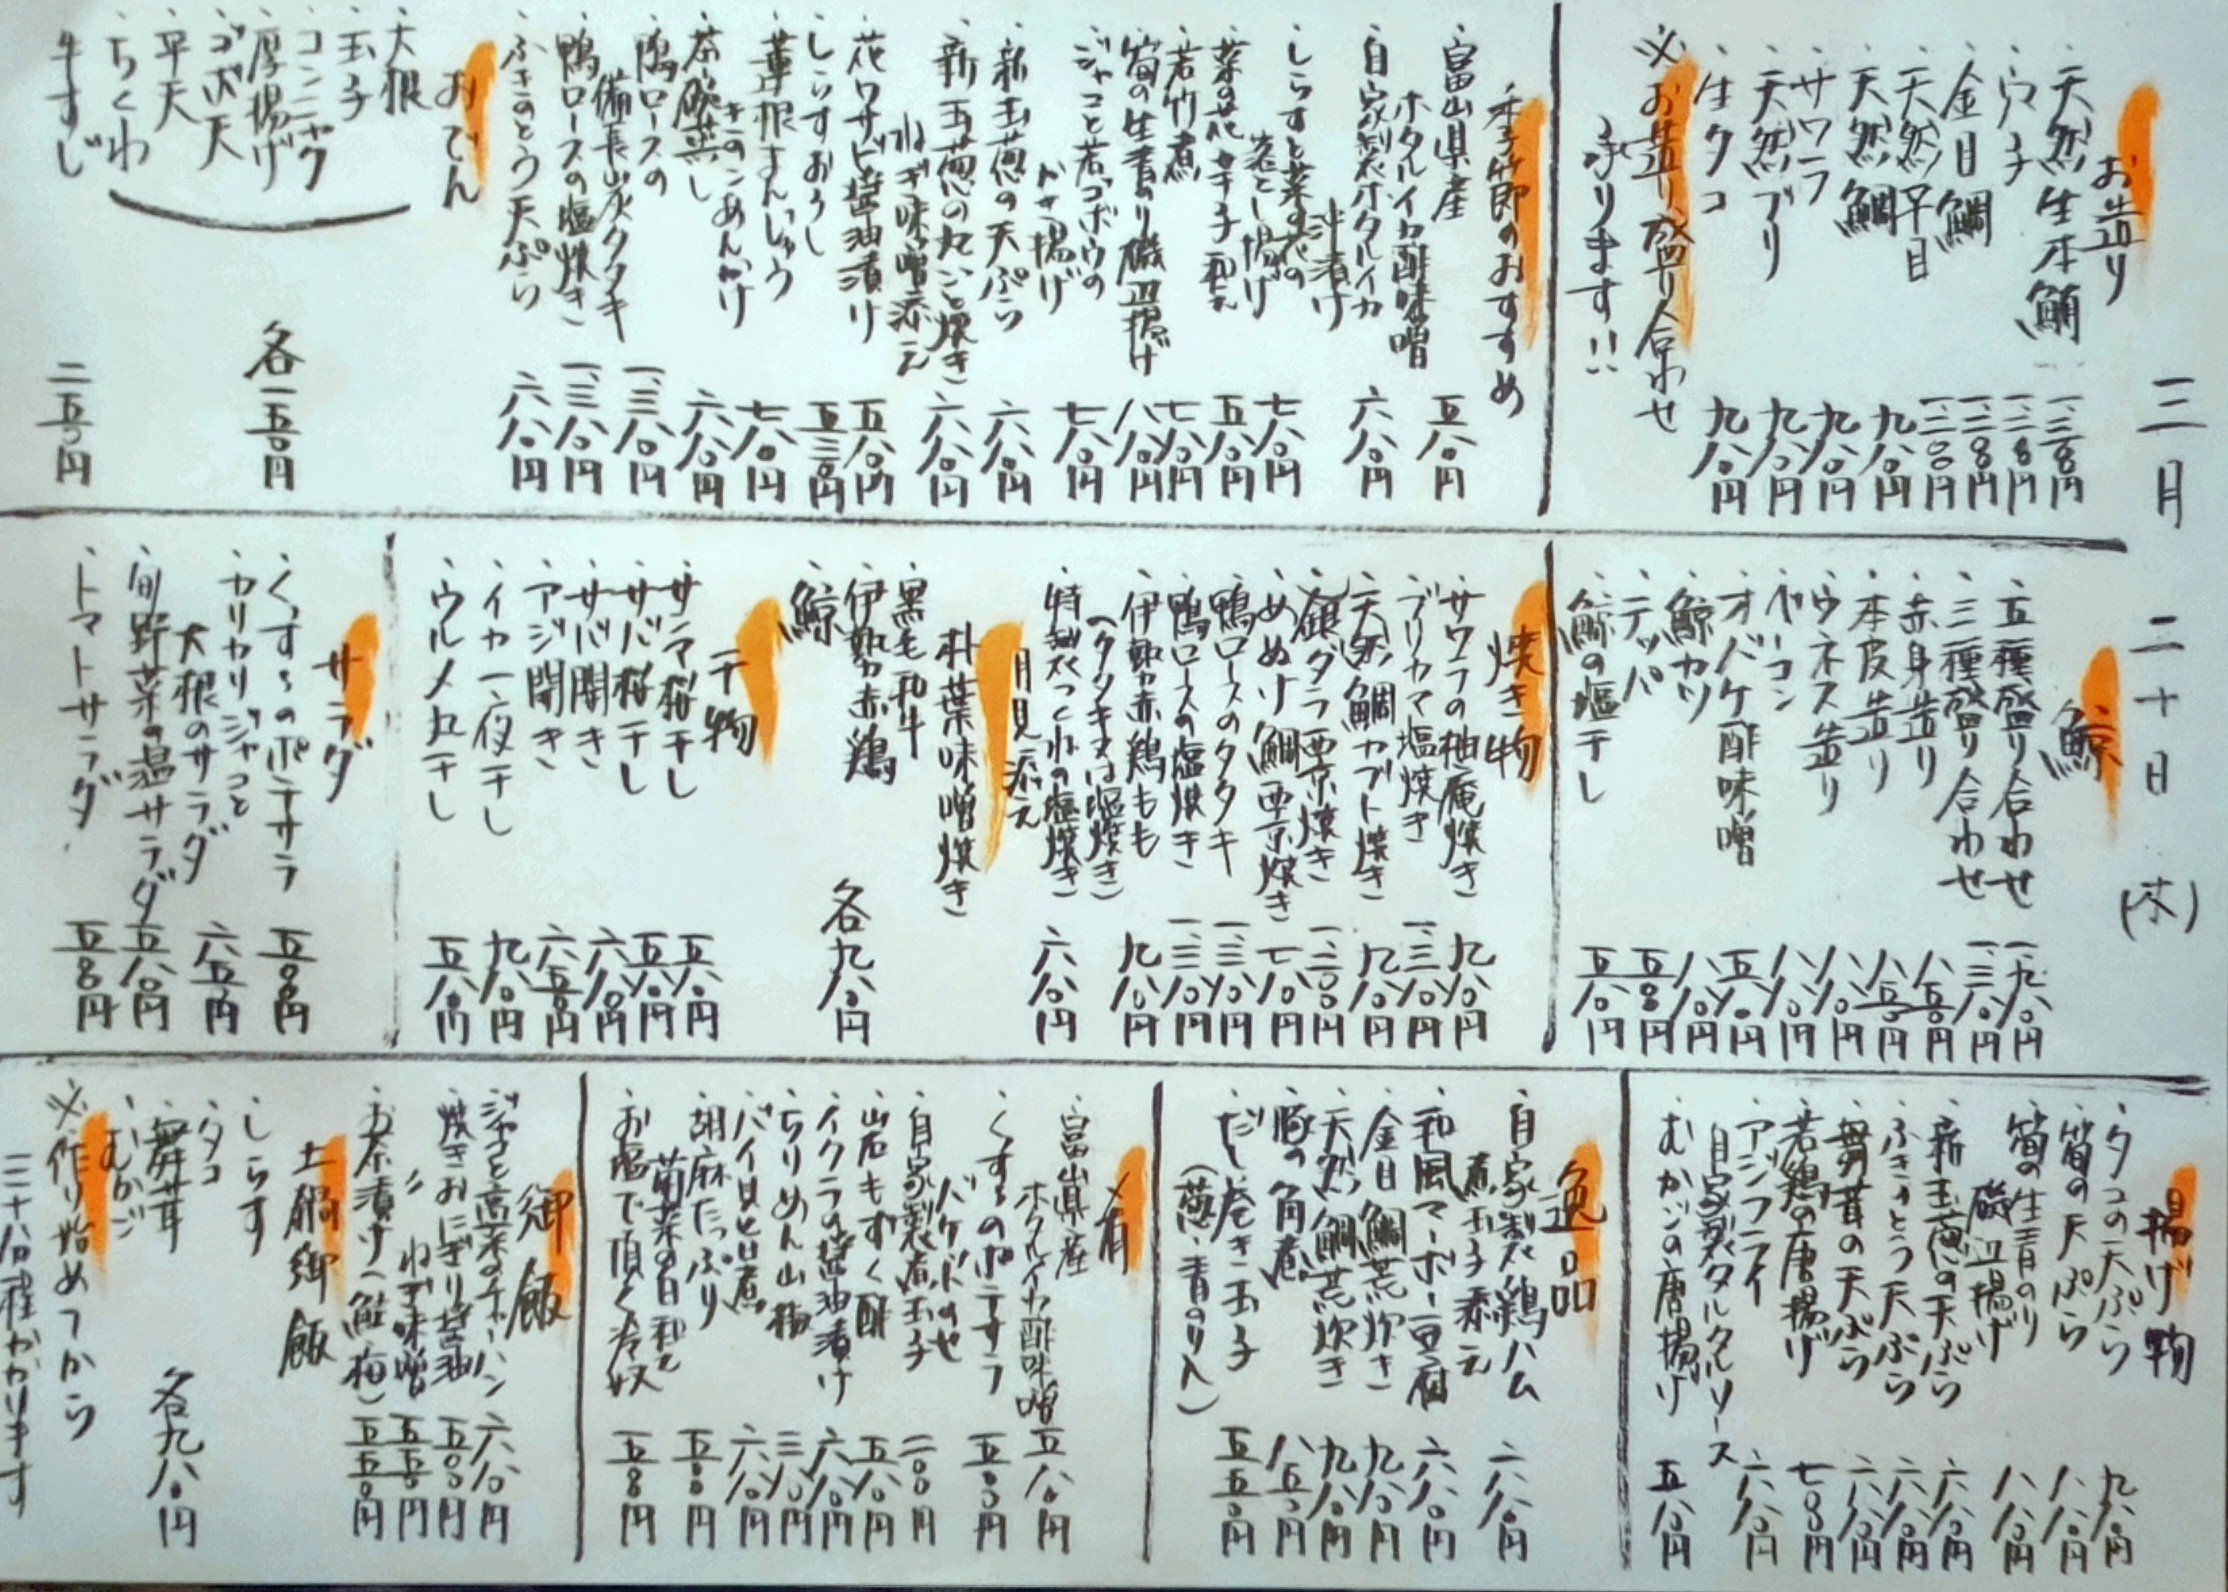 三月 二十日 (木)
お造り
・天然生本鮪 一、三八〇円
・穴子
・金目鯛
・天然平目 一、二〇〇円
・天然鯛 九八〇円
・サワラ 九八〇円
・天然ブリ 九八〇円
・生タコ 九八〇円
※お造り盛り合わせ
承ります!!
季節のおすすめ
・富山県産
ホタルイカ酢味噌 五八〇円
・自家製ホタルイカ
沖漬け 六八〇円
・しらすと菜の花の
落とし揚げ 七八〇円
・菜の花辛子和え 五八〇円
・若竹煮 七八〇円
・筍の生青のり磯辺揚げ 八八〇円
・ジャコと若ゴボウの
かき揚げ 七八〇円
・新玉葱の天ぷら 六八〇円
・新玉葱の丸ごと焼き
ねぎ味噌添え 六八〇円
・花ワサビ醤油漬け 五八〇円
・しらすおろし 五三〇円
・蓮根まんじゅう
きのこあんかけ 七八〇円
・茶碗蒸し 六八〇円
・鴨ロースの
備長炭タタキ 一、三八〇円
・鴨ロースの塩焼き 一、三八〇円
・ふきのとう天ぷら 六八〇円
おでん
・大根
・玉子
・コンニャク
・厚揚げ
・ゴボ天
・平天
・ちくわ
各一五〇円
・牛すじ 二五〇円
鯨
・五種盛り合わせ 一、九八〇円
・三種盛り合わせ 一、三八〇円
・赤身造り 八五〇円
・本皮造り 八五〇円
・ウネス造り 八八〇円
・ベーコン 八八〇円
・オバケ酢味噌 五八〇円
・鯨カツ 八八〇円
・テッパ 五八〇円
・鯨の塩干し 五八〇円
焼き物
・サワラの柚庵焼き 九八〇円
・ブリカマ塩焼き 一、三八〇円
・天然鯛カブト焼き 九八〇円
・銀ダラ西京焼き 一、二〇〇円
・めぬけ鯛西京焼き 七八〇円
・鴨ロースのタタキ 一、三八〇円
・鴨ロースの塩焼き 一、三八〇円
・伊勢赤鶏もも
(タタキ又は塩焼き) 九八〇円
・特製つくねの塩焼き
月見添え 六八〇円
朴葉味噌焼き
・黒毛和牛
・伊勢赤鶏
・鯨
各九八〇円
干物
・サンマ桜干し 五八〇円
・サバ桜干し 五八〇円
・サバ開き 六八〇円
・アジ開き 六五〇円
・イカ一夜干し 九八〇円
・ウルメ丸干し 五八〇円
サラダ
・くずしのポテサラ 五〇〇円
・カリカリジャコと
大根のサラダ 六五〇円
・旬野菜の温サラダ 五八〇円
・トマトサラダ 五〇〇円
揚げ物
・タコの天ぷら 九八〇円
・筍の天ぷら 八八〇円
・筍の生青のり
磯辺揚げ 八八〇円
・新玉葱の天ぷら 六八〇円
・ふきのとう天ぷら 六八〇円
・舞茸の天ぷら 六八〇円
・若鶏の唐揚げ 七〇〇円
・アジフライ
自家製タルタルソース 六八〇円
・むかごの唐揚げ 五八〇円
逸品
・自家製鶏ハム
煮玉子添え 六八〇円
・和風マーボー豆腐 六八〇円
・金目鯛荒炊き 九八〇円
・天然鯛荒炊き 九八〇円
・豚の角煮 八五〇円
・だし巻き玉子
(葱・青のり入) 五五〇円
〆肴
・富山県産
ホタルイカ酢味噌 五八〇円
・くずしのポテサラ
バケットのせ 五〇〇円
・自家製煮玉子 二〇〇円
・岩もずく酢 五八〇円
・イクラの醤油漬け 六八〇円
・ちりめん山椒 三八〇円
・バイ貝と煮 六八〇円
・胡麻たっぷり
菊菜の白和え 五〇〇円
・お塩で頂く冷奴 五〇〇円
御飯
・ジャコと高菜のチャーハン 六八〇円
・焼きおにぎり醤油 五〇〇円
〃 ねぎ味噌 五五〇円
・お茶漬け(鮭・梅) 五五〇円
土鍋御飯
・しらす
・タコ
・舞茸
・むかご
各九八〇円
※作り始めてから
三十八分程かかります